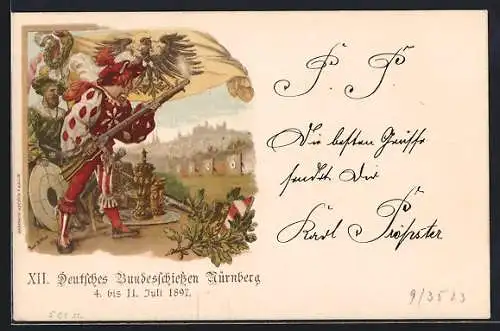 P. P.
Die besten Grüsse
sendet Dir
Karl Tröpster
XII. Deutsches Bundesschießen Nürnberg
4. bis 11. Juli 1897.
9/3523